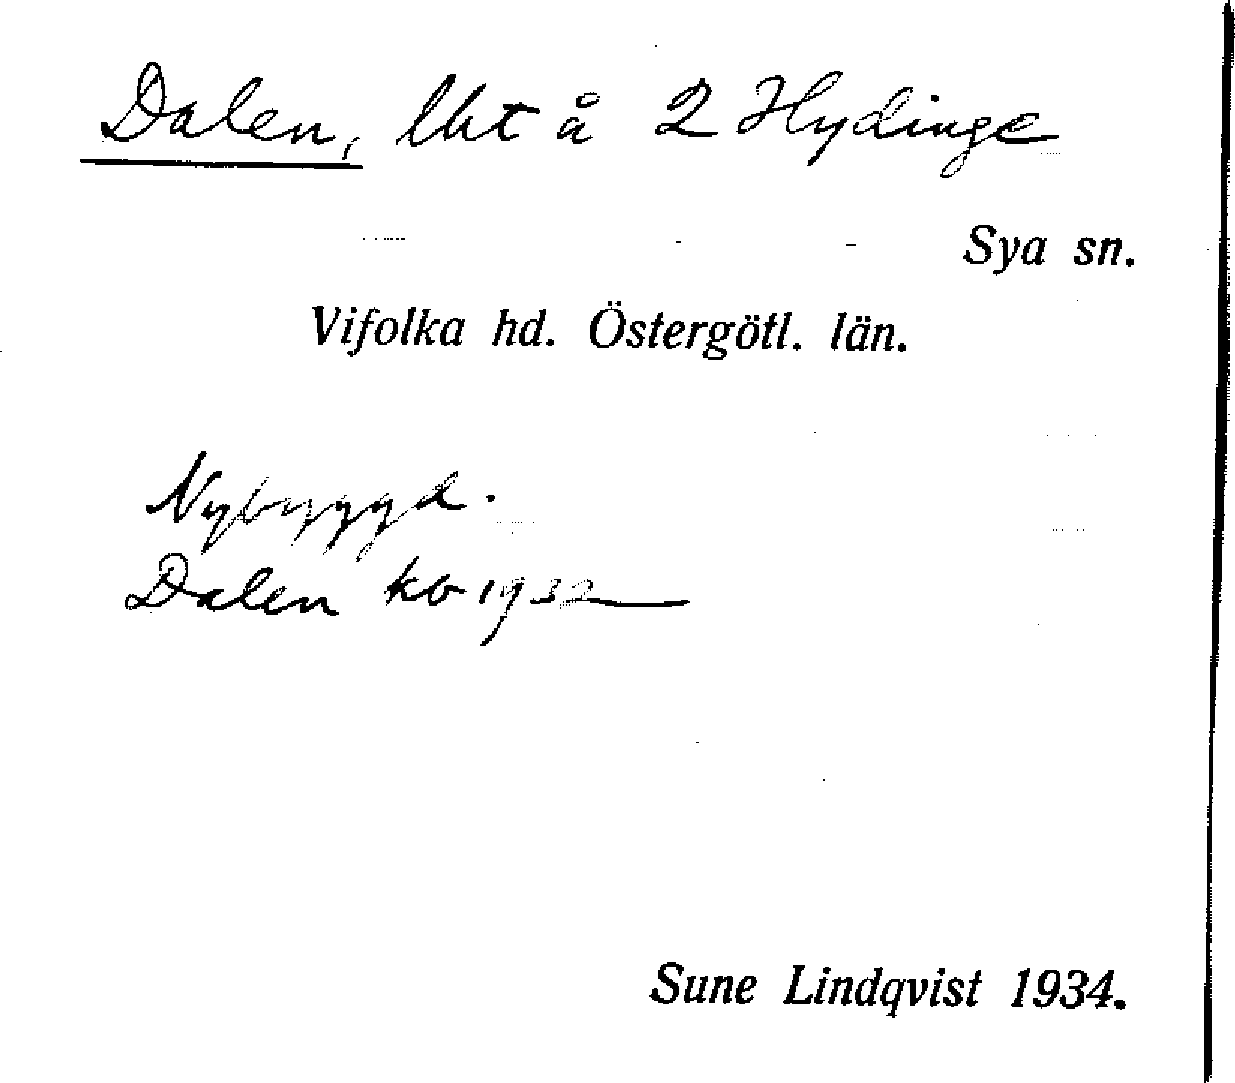 Dalen, lht å 2 Hydinge
Sya sn.
Vifolka hd. Östergötl. län.
Nybyggd.
Dalen kb 1932
Sune Lindqvist 1934.